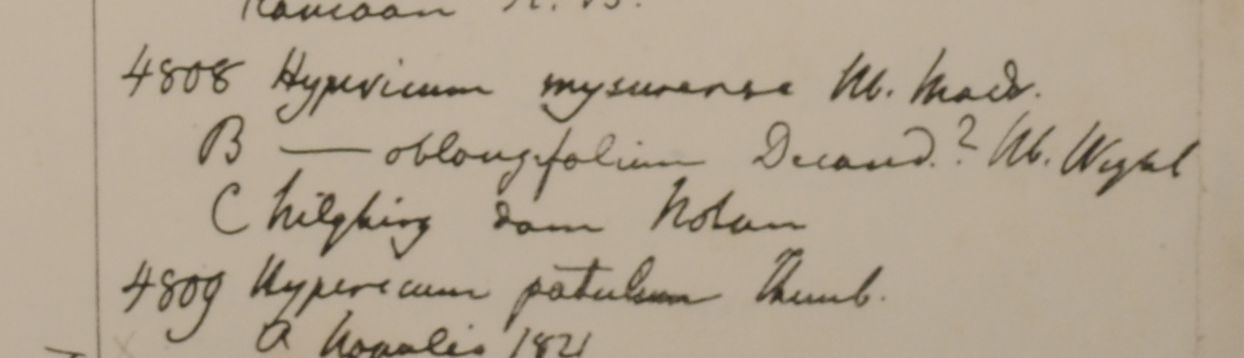 4808 Hypericum mysurense Hb. Madr.
B — oblongifolium Decand.? Hb. Wight
C Nilghiry dom Noton
4809 Hypericum patulum Thunb.
a Napalia 1821